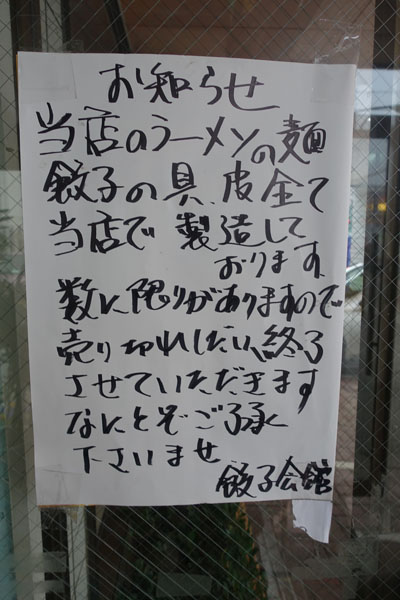 お知らせ
当店のラーメンの麺
餃子の具、皮全て
当店で製造して
おります
数に限りがありますので
売り切れしだい、終了
させていただきます
なにとぞご了承
下さいませ
餃子会館